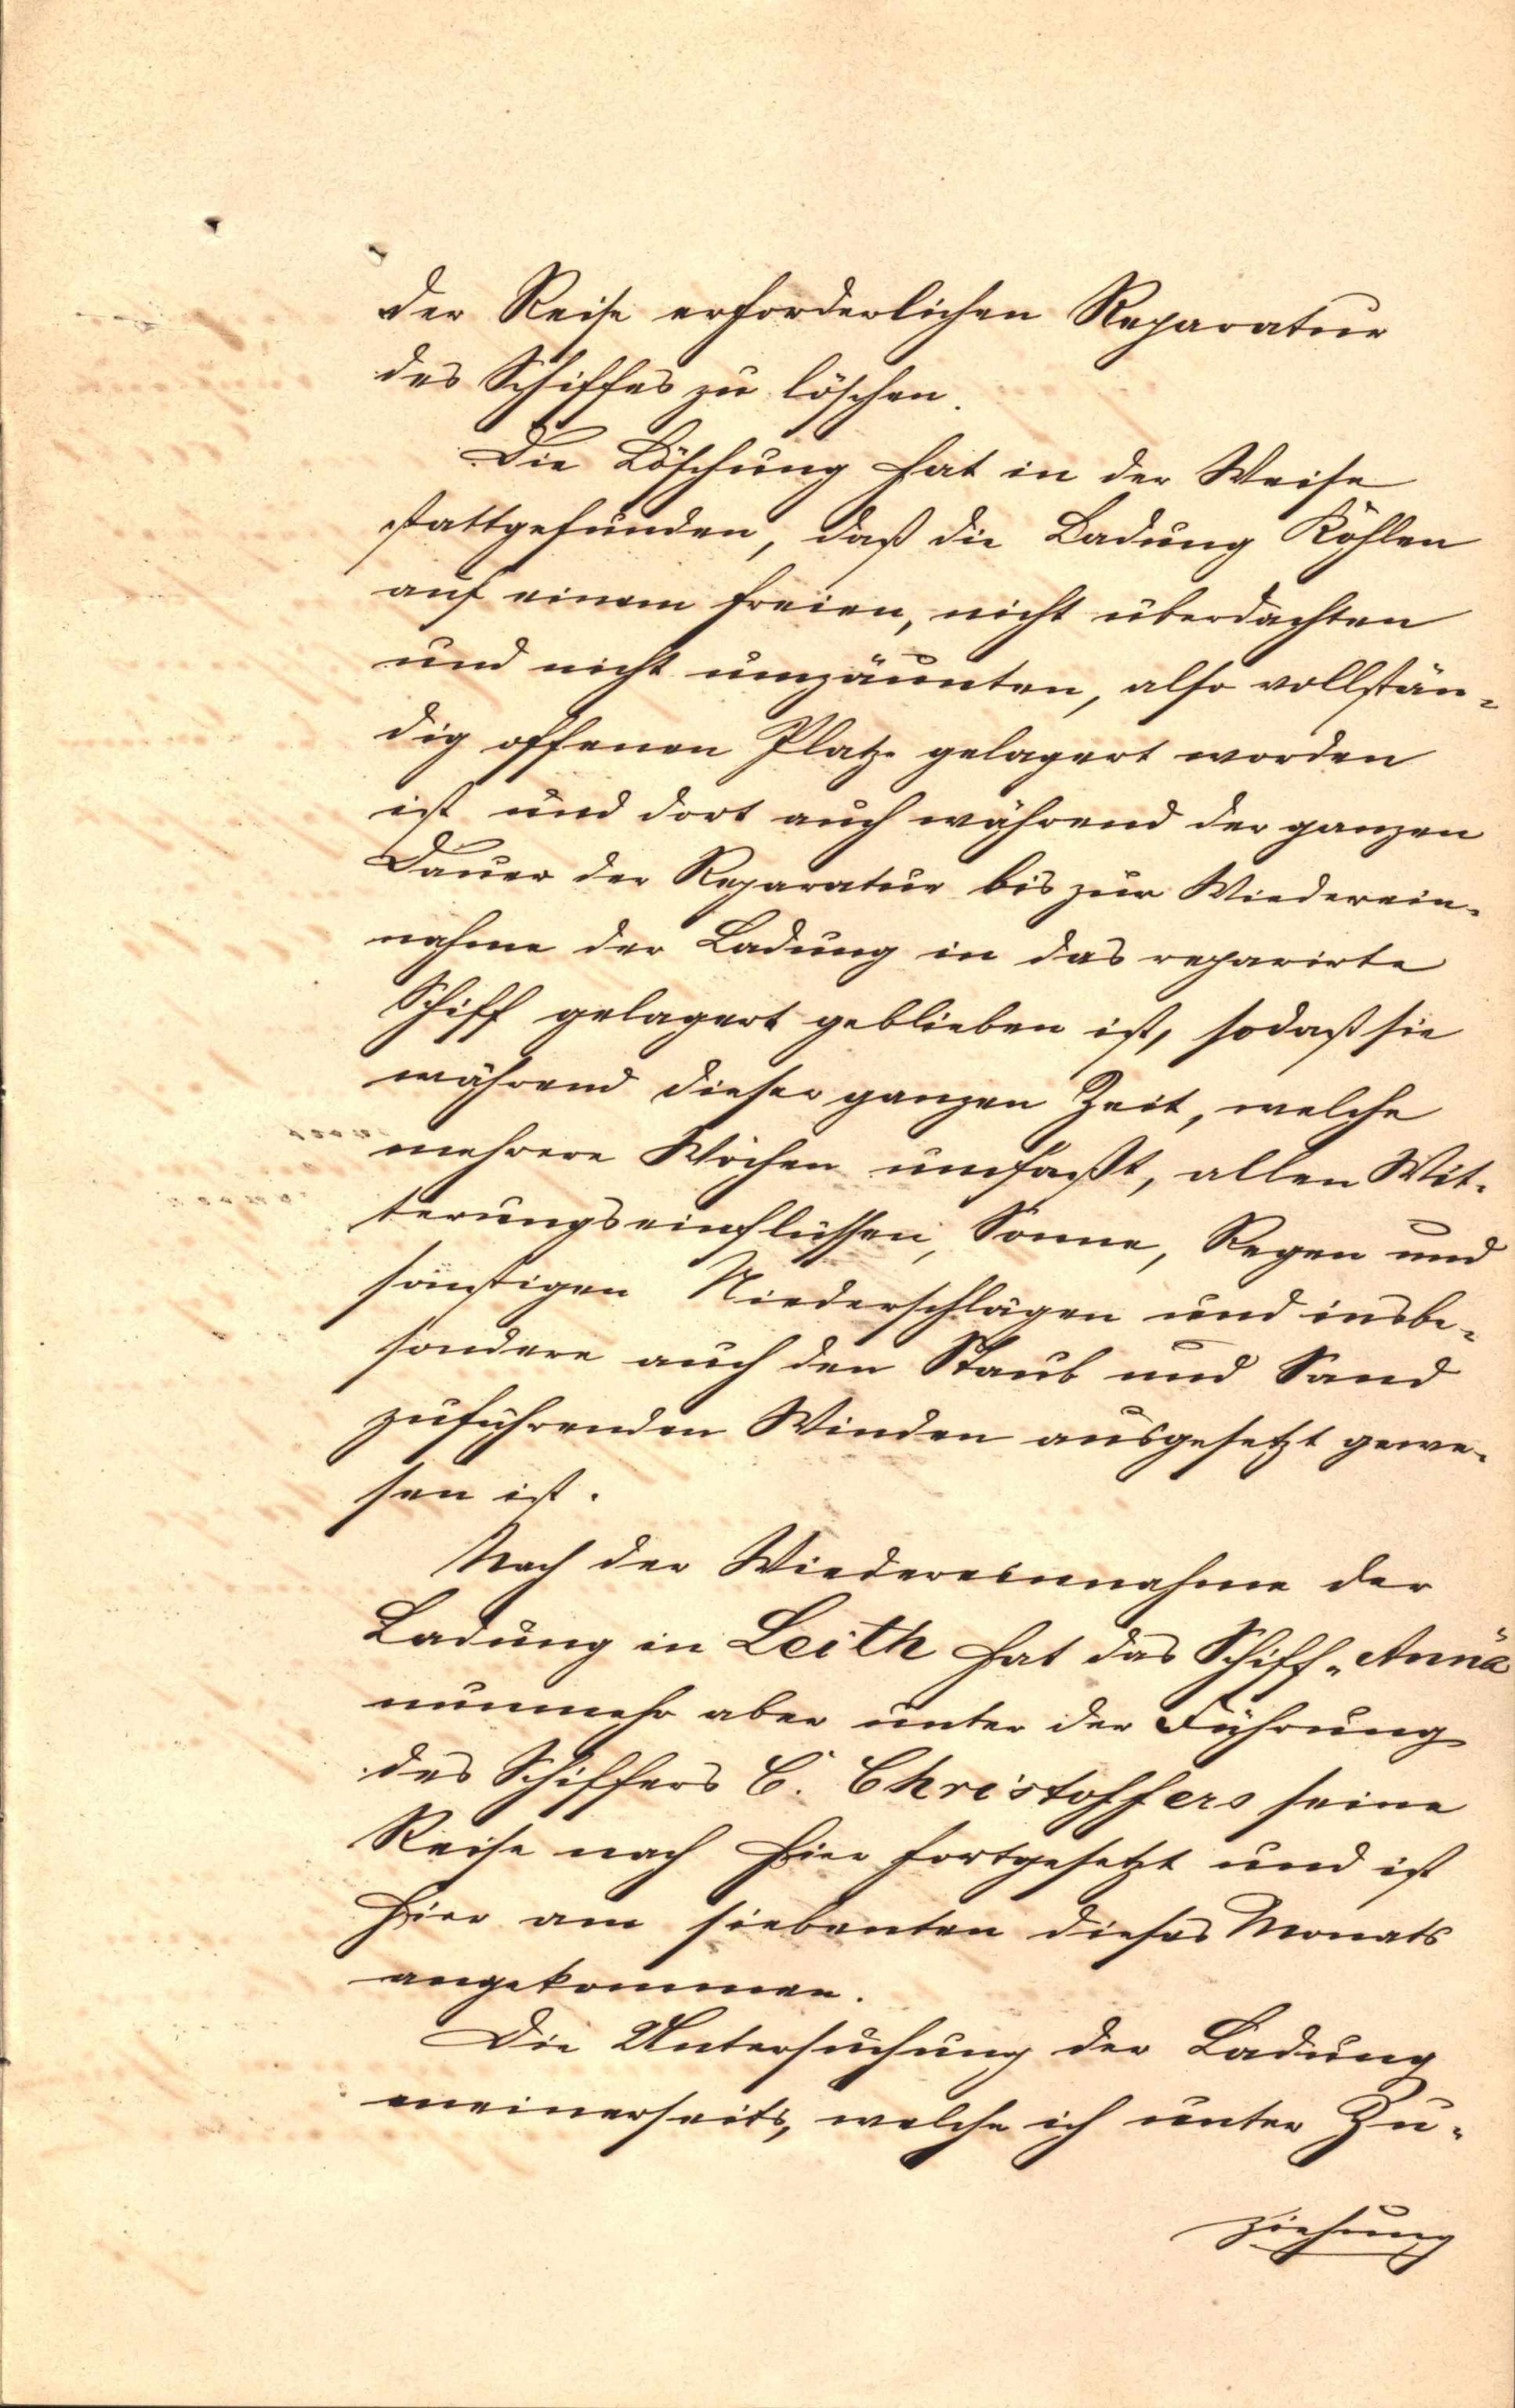 der Reise erforderlichen Reparatur
des Schiffes zu löschen.
Die Löschung hat in der Weise
stattgefunden, daß die Ladung Kohlen
auf einem freien, nicht überdachten
und nicht umzäunten, also vollstän-
dig offenen Platze gelagert worden
ist und dort auch während der ganzen
Dauer der Reparatur bis zur Wiederein-
nahme der Ladung in das reparirte
Schiff gelagert geblieben ist, sodaß sie
während dieser ganzen Zeit, welche
mehrere Wochen umfaßt, allen Wit-
terungseinflüssen, Sonne, Regen und
sonstigen Niederschlägen und insbe-
sondere auch den Staub und Sand
zuführenden Winden ausgesetzt gewe-
sen ist.
Nach der Wiedereinnahme der
Ladung in Leith hat das Schiff „Anna"
nunmehr aber unter der Führung
des Schiffers C. Christoffers seine
Reise nach hier fortgesetzt und ist
hier am siebenten dieses Monats
angekommen.
Die Untersuchung der Ladung
meinerseits, welche ich unter Zu-
ziehung